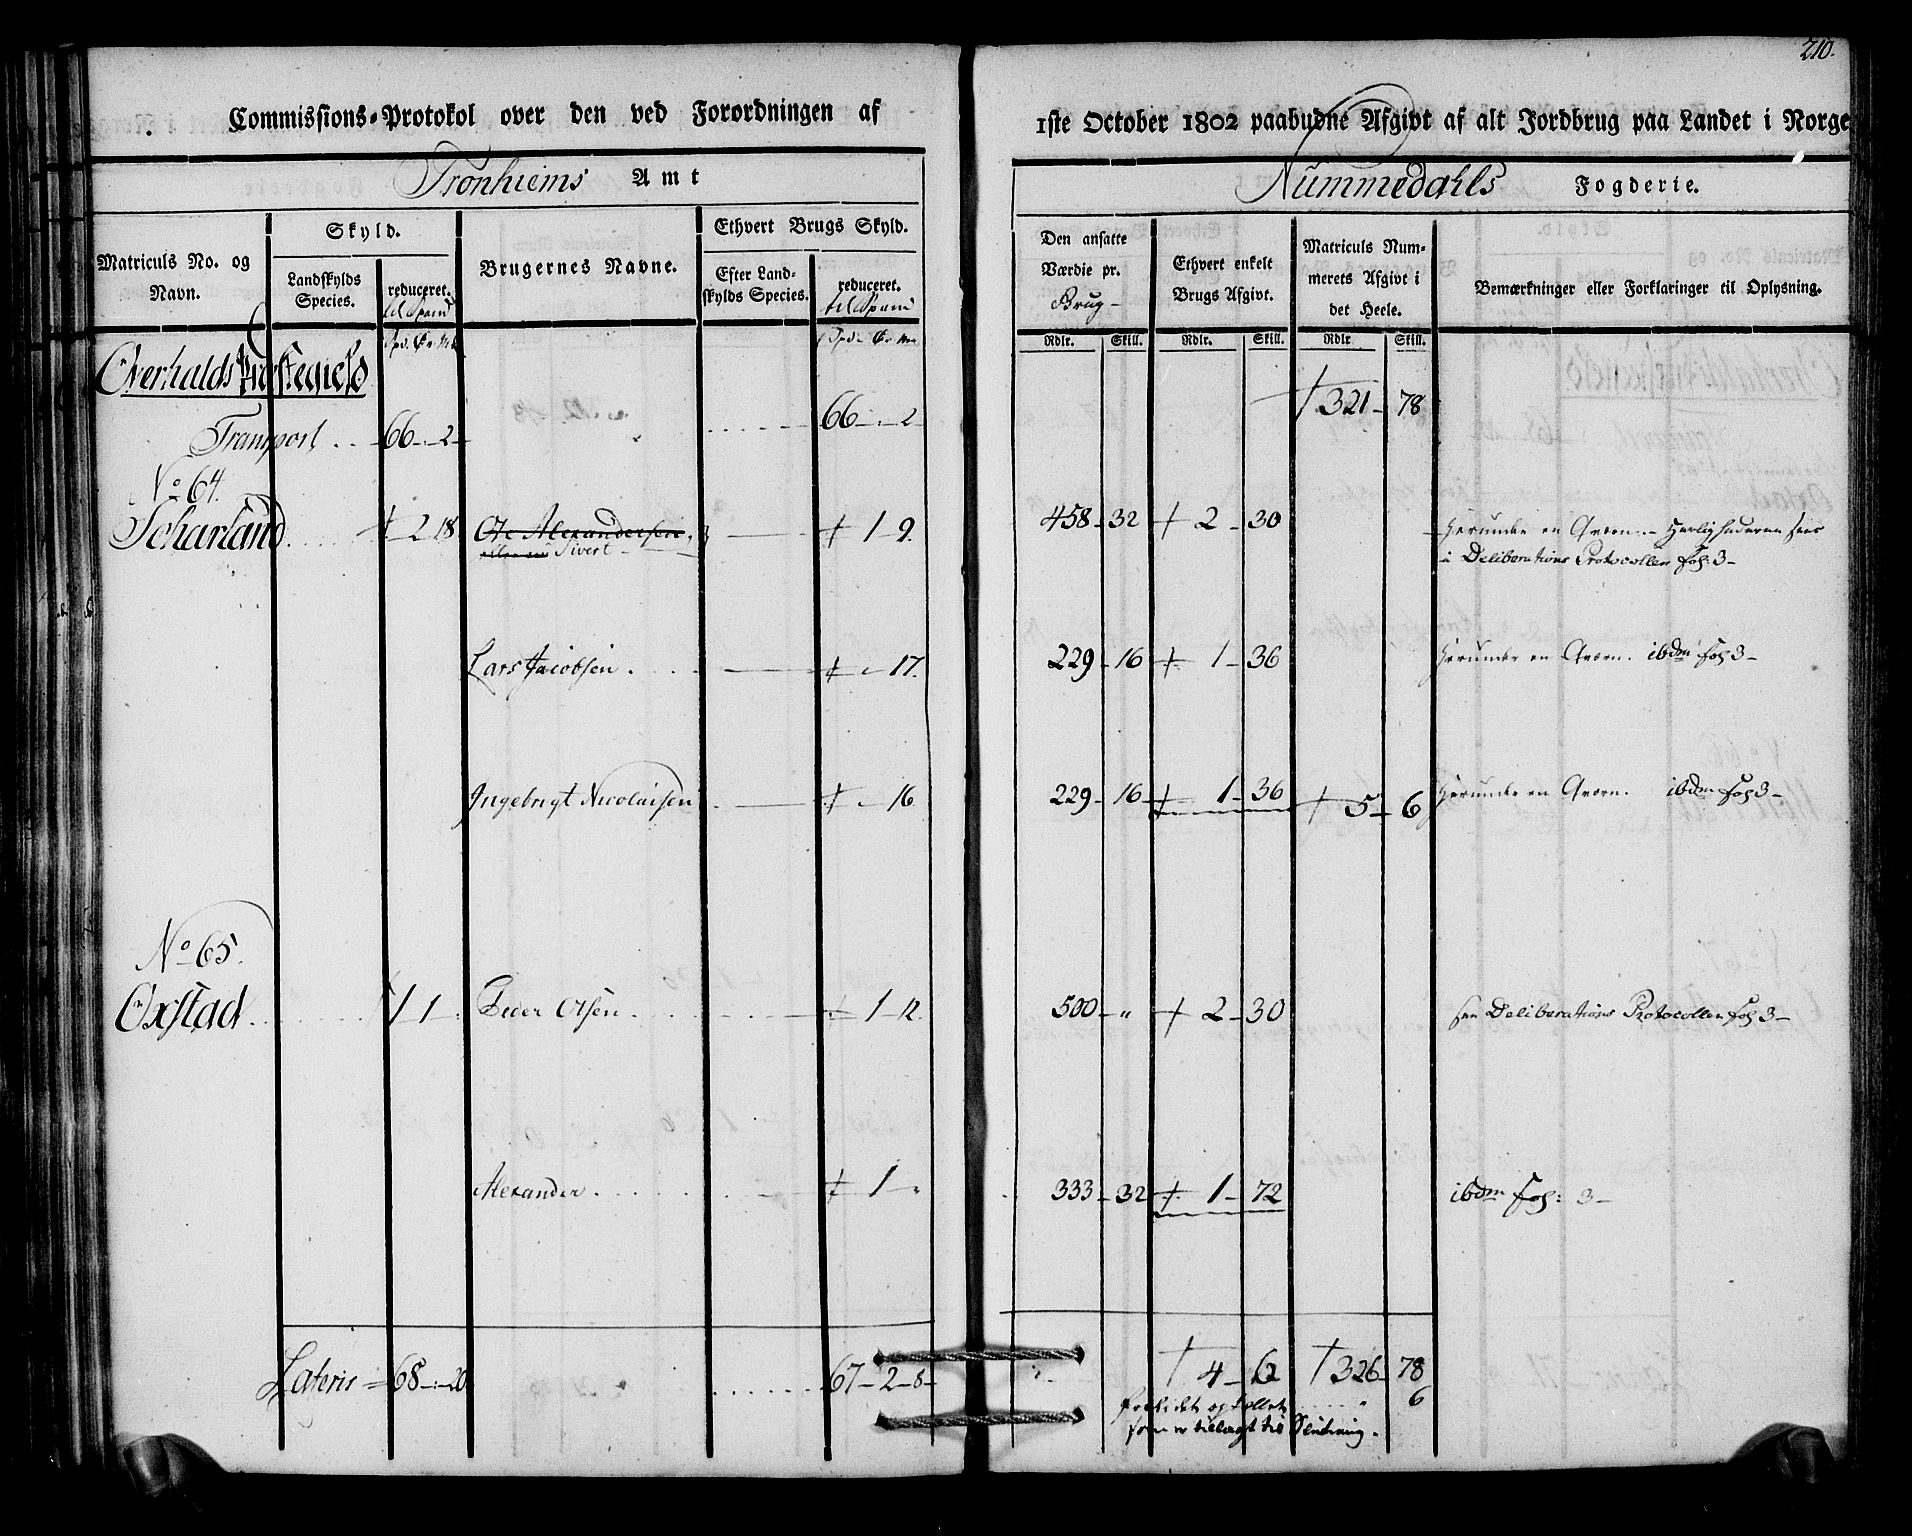 210.
Commissions-Protokol over den ved Forordningen af 1ste October 1802 paabudne Afgivt af alt Jordbrug paa Landet i Norge
Tronhiems Amt
Nummedahls Fogderie.
Matriculs No. og Navn.
Skyld.
Landskylds Species.
reduceret. til Spand
Brugernes Navne.
Ethvert Brugs Skyld.
Efter Landskylds Species.
reduceret. til Spand
Den ansatte Værdie pr. Brug-
Ethvert enkelt Brugs Afgivt.
Matriculs Nummerets Afgivt i det Heele.
Bemærkninger eller Forklaringer til Oplysning.
Rdlr. Skill. Rdlr. Skill. Rdlr Skill.
Overhalds Præstegield
Transport . . 66 . 2 66 . 2 321 - 78
No 64.
Scharland 2 18 Ole Alexandersen 1 9. 458 - 32 2 - 30 Herunder en Qværn
Sivert i Deliberations Protocollen Fol: 3 -
Lars Jacobsen . 17. 229 - 16 1 - 36 Herunder en Qværn. ibdm Fol 3 -
Ingebrigt Nicolaisen 16 229 - 16 1 - 36 5 - 6 Herunder en Qværn. ibdm Fol 3 -
No 65.
Oxstad 1 1 Peder Olsen 1 - 12. 500 - " 2 - 30 see Deliberations Protocollen Fol 3 -
Alexander 1 - " 333 - 32 1 - 72 ibdm Fol: 3 -
Lateris = 68 - : - 20 67 - 2 - 8 - 4 - 6 326 - 78
6